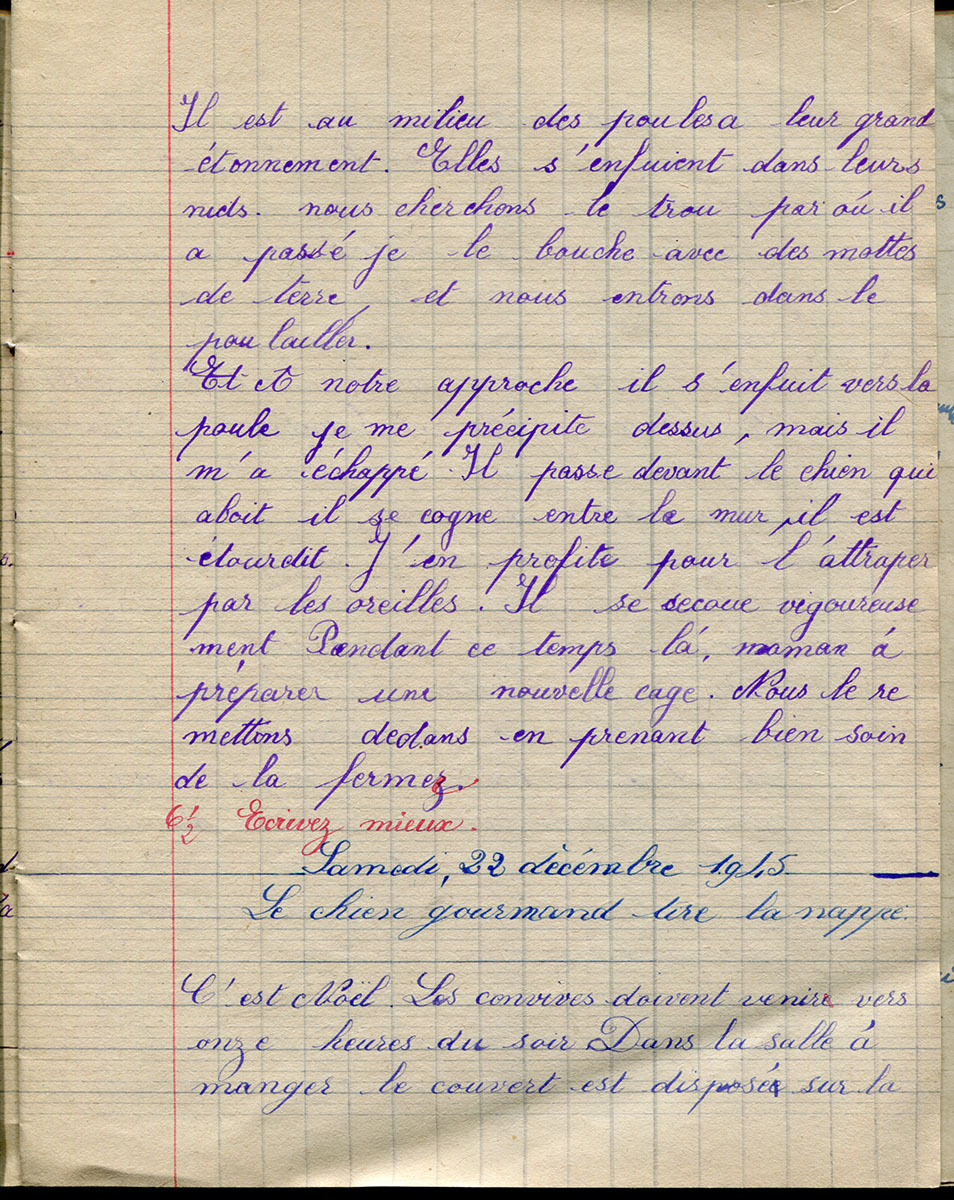 Il est au milieu des poules a leur grand
étonnement. Elles s'enfuient dans leurs
nids. nous cherchons le trou par où il
a passé je le bouche avec des mottes
de terre, et nous entrons dans le
poulailler.
Et A notre approche il s'enfuit vers la
poule je me précipite dessus, mais il
m'a échappé. Il passe devant le chien qui
aboit il se cogne entre le mur, il est
étourdit. J'en profite pour l'attraper
par les oreilles. Il se secoue vigoureuse
ment Pendant ce temps là, maman à
préparer une nouvelle cage. Nous le re
mettons dedans en prenant bien soin
de la fermez.
6 1/2 Ecrivez mieux.
Samedi, 22 décémbre 1945
Le chien gourmand tire la nappe.
C'est Noël. Les convives doivent venir vers
onze heures du soir Dans la salle à
manger le couvert est disposé sur la